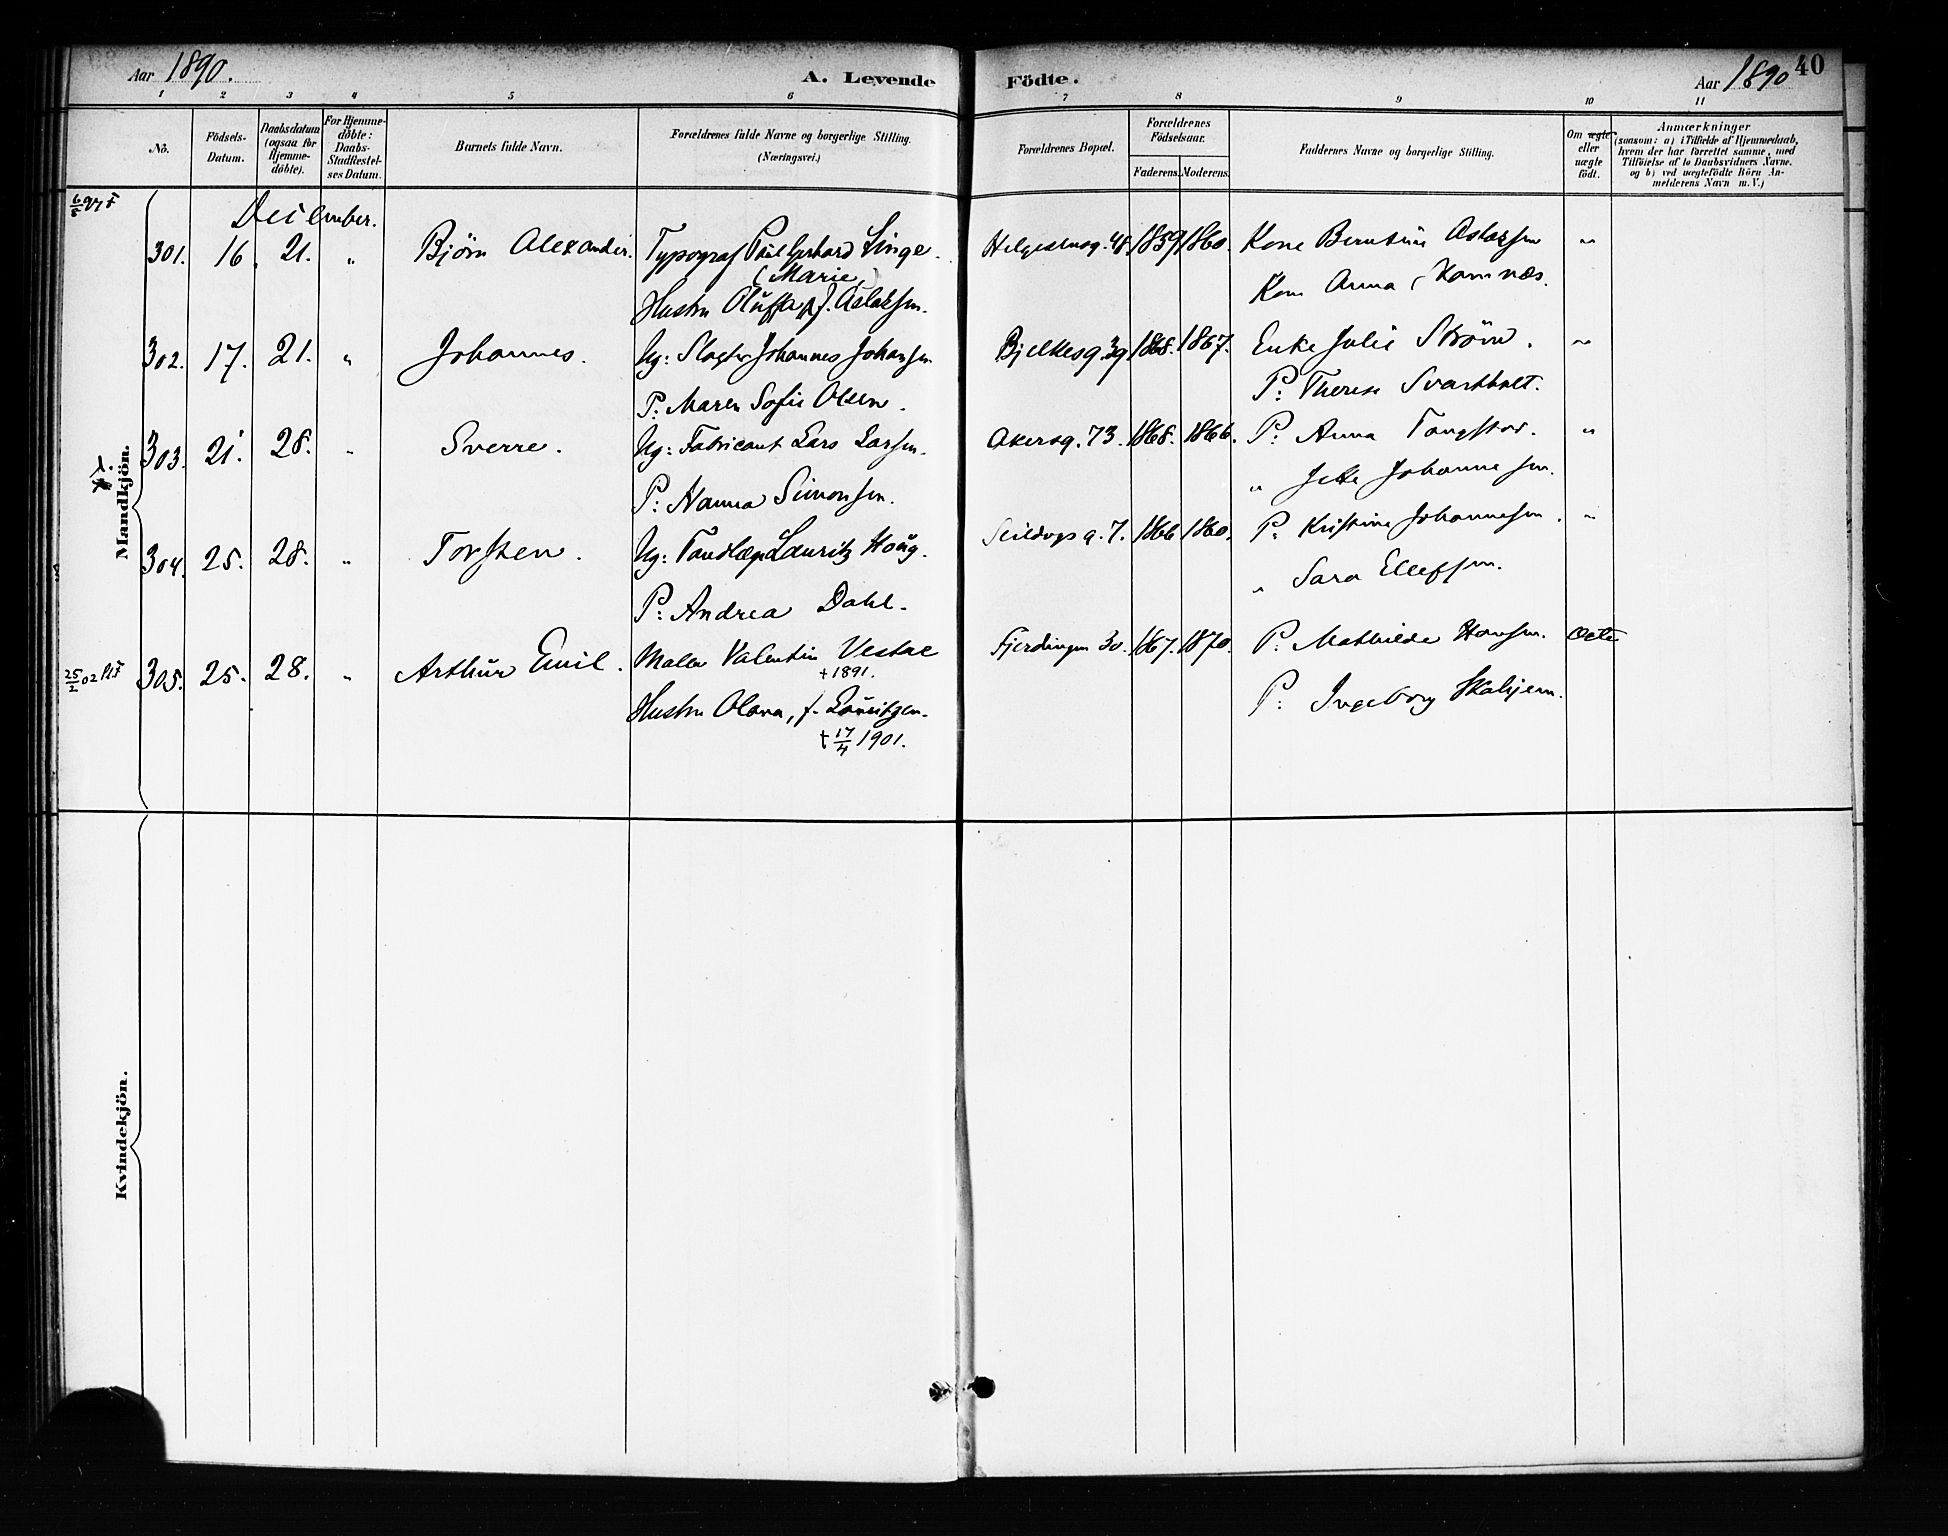 Aar 1890. A. Levende
Födte. Aar 1890 40
1 2 3 4 5 6 7 8 9 10 11
No. Födsels-Datum. Daabsdatum (ogsaa for Hjemme-döbte). For Hjemme-döbte: Daabs-Stadfæstel-ses Datum. Barnets fulde Navn. Forældrenes fulde Navne og borgerlige Stilling. (Næringsvei.)
Forældrenes Bopæl. Forældrenes Födselsaar. Faderens. Moderens. Faddernes Navne og borgerlige Stilling. Om ægte eller uægte födt. Anmærkninger (saasom: a) i Tilfælde af Hjemmedaab, hvem der har forrettet samme, med Tilföielse af to Daabsvidners Navne, og b) ved uægtefödte Börn An-melderens Navn m. V.)
December.
301. 16. 21. " Bjørn Alexander. Typograf Paul Gerhard Linge. Helgesensg. 48. 1859 1860. Kone Berntine Aslaksen "
(Marie)
Hustru Oluffa, f. Aslaksen. Kone Anna Hamnæs.
302. 17. 21. " Johannes. Ug: Slagter Johannes Johansen Bjelkesg 39 1868. 1867. Enke Julie Strøm. "
P: Maren Sofie Olsen. P: Therese Svartholt.
303. 21. 28. " Sverre. Ug: Fabricant Lars Larsen. Akersg. 73. 1868. 1866. P: Anna "
P: Hanna Simonsen. " Jette Johannesen.
304. 25. 28. " Torsten. Ug: Tandlæge Lauritz Houg. Seildugsg. 7. 1866 1860. P: Kristine Johannesen. "
P: Andrea Dahl. " Sara Ellefsen.
25/2 02 305. 25. 28. " Arthur Emil. Maler Valentin Vestne Fjerdingen 30. 1867. 1870. P: Mathilde Hansen. Ægte
+ 1891.
Hustru Olava, f. Lauritzen. P: Ingeborg Skahjem.
+ 17/4 1901.
Mandkjön.
Kvindekjön.